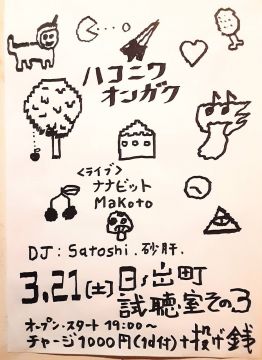 ハコニワ
オンガク
<ライブ>
ナナビット
MaKoto
DJ:Satoshi.砂肝.
3.21[土]日ノ出町
試聴室その3
オープン・スタート 19:00~
チャージ 1000円(1d付)+投げ銭